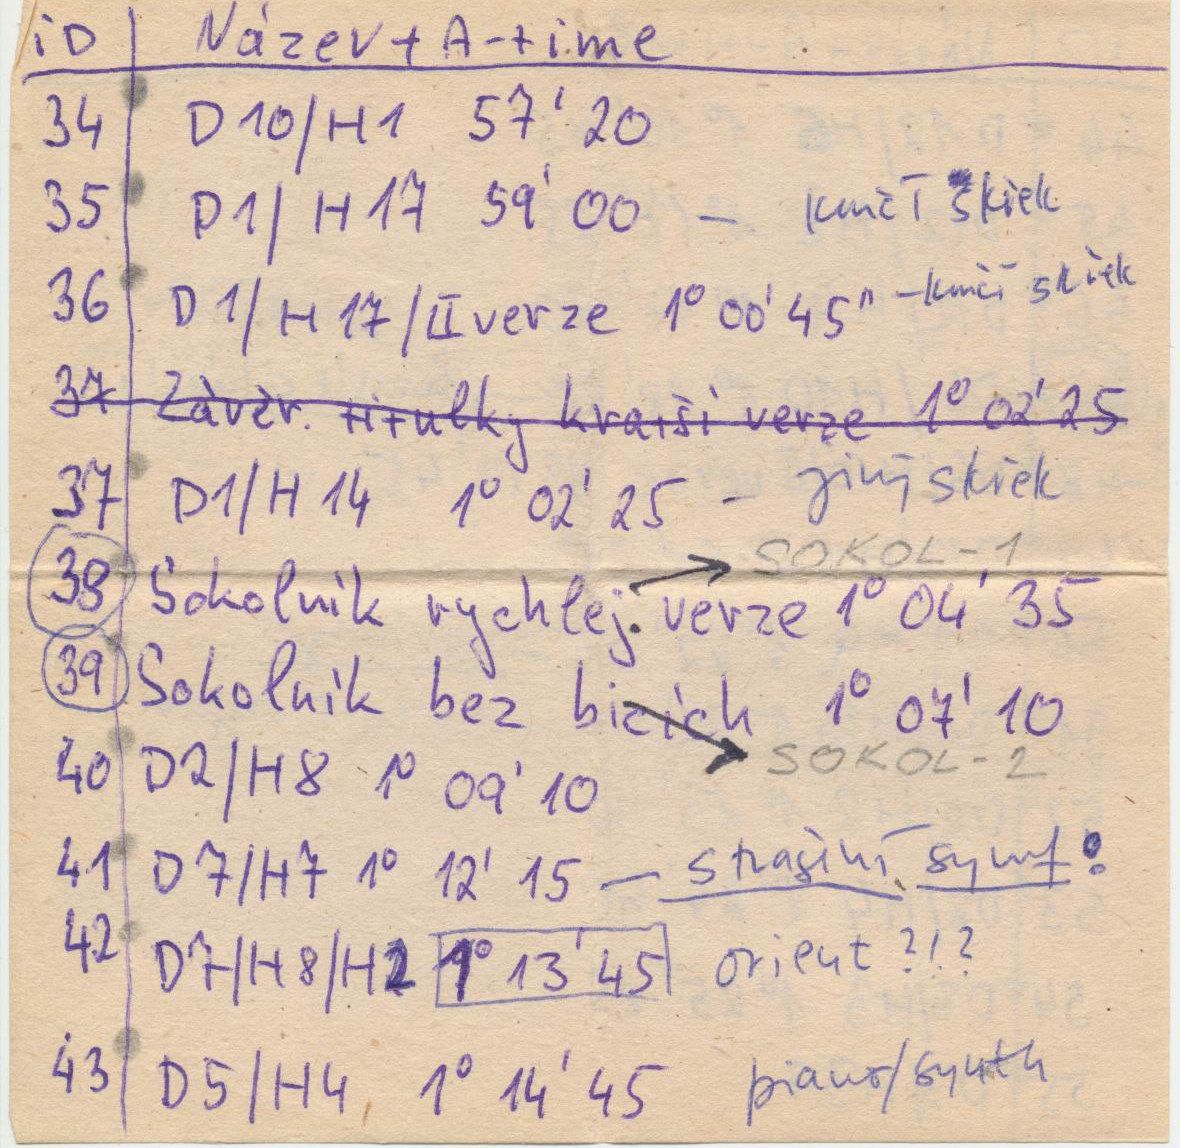 iD Název + A-time
34 D10/H1 57' 20
35 D1/H17 59' 00 - kničí skřek
36 D1/H17/II verze 1° 00' 45" - kničí skřek
37 Závěr. titulky kratší verze 1° 02' 25
37 D1/H14 1° 02' 25 - jiný skřek
SOKOL-1
38 Sokolnik rychlej. verze 1° 04' 35
39 Sokolnik bez bicích 1° 07' 10
SOKOL-2
40 D2/H8 1° 09' 10
41 D7/H7 1° 12' 15 - strašiní symf!
42 D7/H8/H2 1° 13' 45 orient ?!?
43 D5/H4 1° 14' 45 piano/synth